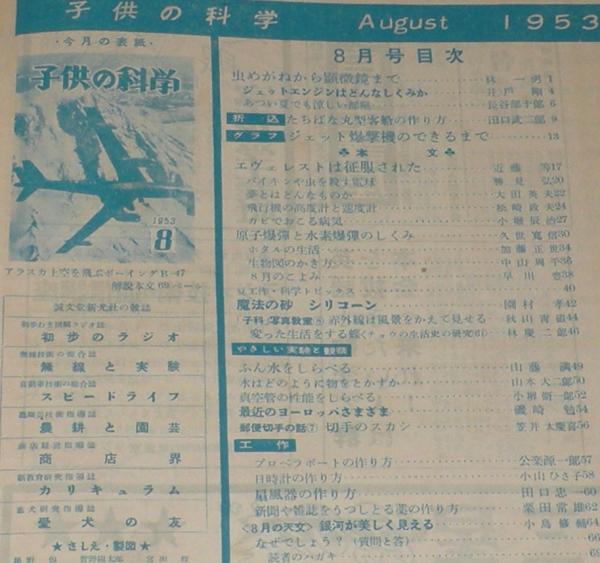 子供の科学 August 1953
・今月の表紙・
子供の科学
1953
8
アラスカ上空を飛ぶボーイングB-47
解説本文69ページ
誠文堂新光社の雑誌
初歩のラジオ
無線と実験
スピードライフ
農耕と園芸
商店経営指導誌
商店界
新教育研究指導誌
カリキュラム
愛犬研究指導誌
愛犬の友
★さしえ・製図★
8月号目次
虫めがねから顕微鏡まで 林 一男 1
ジェットエンジンはどんなしくみか 井戸 剛 4
あつい夏でも涼しい部屋 長谷部十郎 6
折込 たちばな丸型客船の作り方 田口武二郎 9
グラフ ジェット爆撃機のできるまで 13
♣本文♣
エヴェレストは征服された 近藤 等17
バイキンや虫を殺す電球 勝見 弘20
夢とはどんなものか 大田英夫22
飛行機の高度計と速度計 松崎政夫24
カビでおこる病気 小堀辰治27
原子爆弾と水素爆弾のしくみ 久世寛信30
ホタルの生活 加藤正世34
生物図のかき方 中山周平36
8月のこよみ 38
豆工作・科学トピックス 40
魔法の砂 シリコーン 園村 孝42
「子科」写真教室 赤外線は風景をかえて見せる 秋山青磁44
変った生活をする蝶 林 慶二郎46
やさしい実験と観察
ふん水をしらべる 山藤 満49
水はどのように物をとかすか 山本大二郎50
真空管の性能をしらべる 小堺衛一郎52
最近のヨーロッパさまざま 磯崎 勉54
郵便切手の話⑦ 切手のスカシ 笠井太慶喜56
工作
プロペラボートの作り方 公楽源一郎57
日時計の作り方 小山ひさ子58
扇風器の作り方 田口忠一60
新聞や雑誌をうつしとる薬の作り方 栗田常雄62
〈8月の天文〉銀河が美しく見える 小島修輔64
なぜでしょう?(質問と答) 66
読者のハガキ